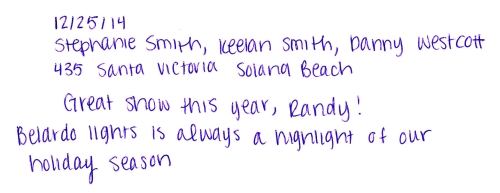 12/25/14
Stephanie Smith, Keelan Smith, Danny Westcott
435 Santa Victoria Solana Beach
Great show this year, Randy!
Belardo lights is always a highlight of our
holiday season